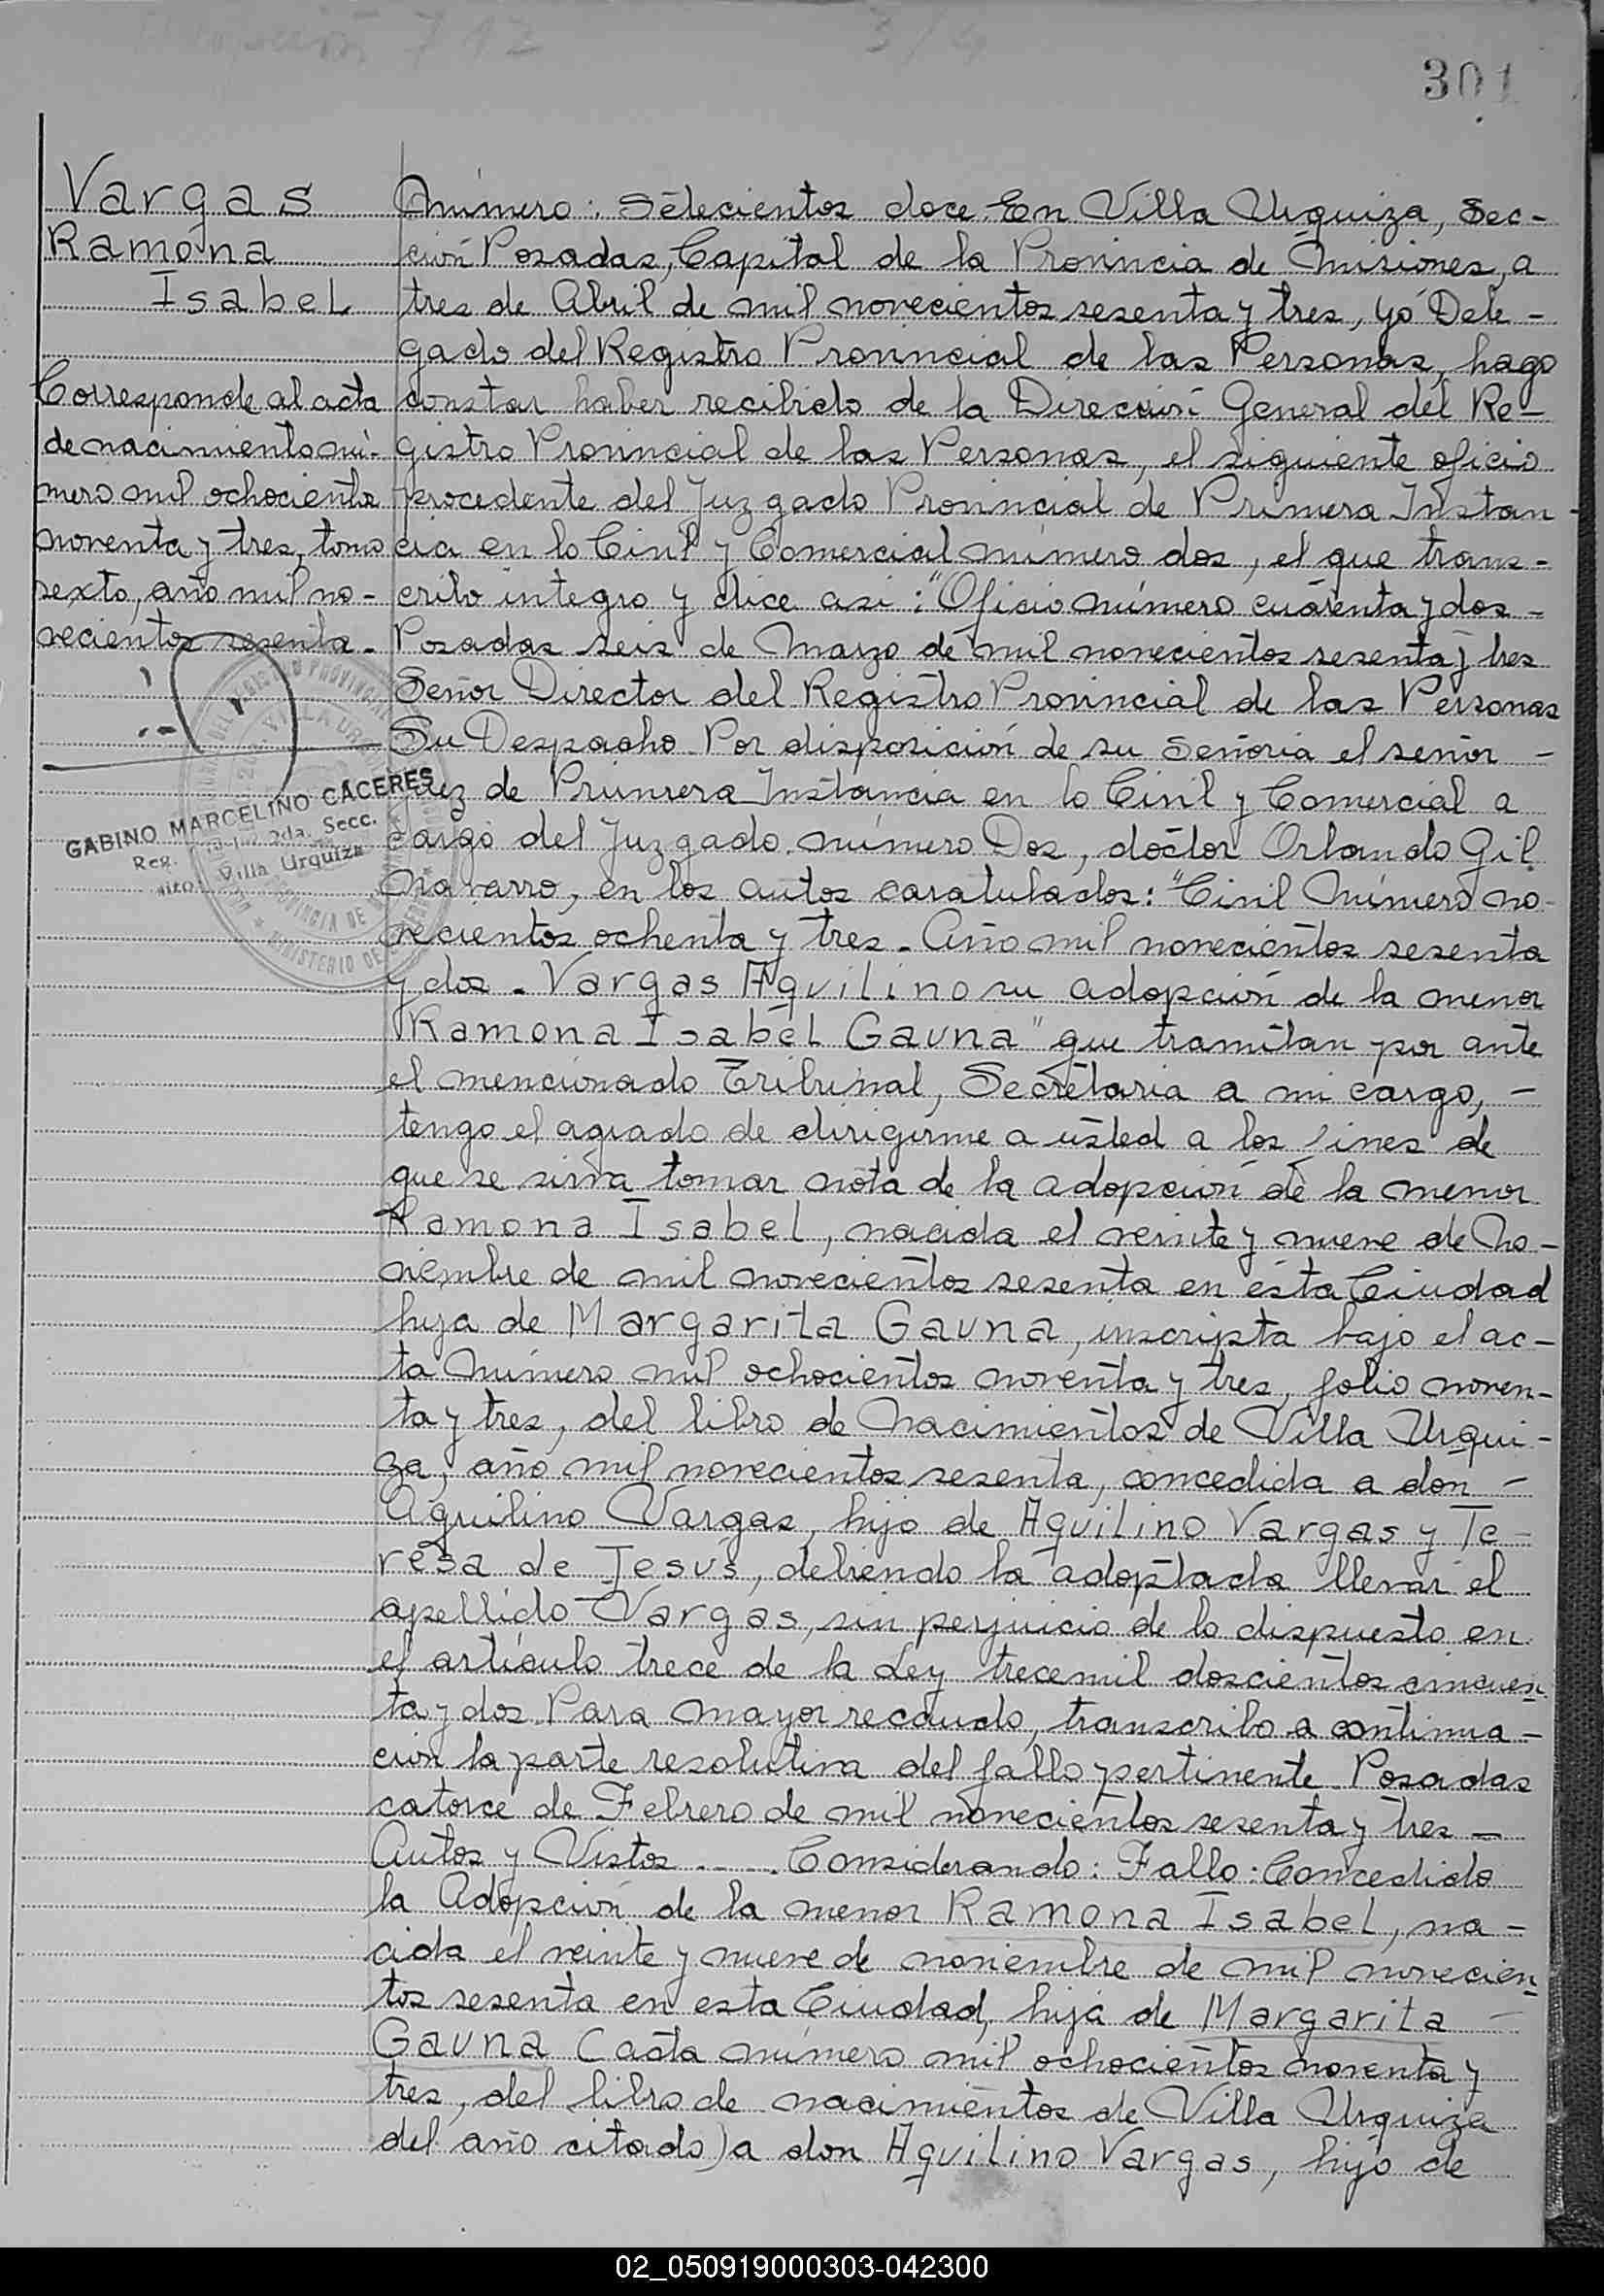 301
Vargas
Ramona
Isabel
Corresponde al acta
de nacimiento nú-
mero mil ochocientos
noventa y tres, tomo
sexto, año mil no-
vecientos sesenta.
GABINO MARCELINO CACERES
2da. Secc.
Villa Urquiza
Número: Setecientos doce. En Villa Urquiza, Sec-
ción Posadas, Capital de la Provincia de Misiones, a
tres de Abril de mil novecientos sesenta y tres, yó Dele-
gado del Registro Provincial de las Personas, hago
constar haber recibido de la Dirección General del Re-
gistro Provincial de las Personas, el siguiente oficio
procedente del Juzgado Provincial de Primera Instan-
cia en lo Civil y Comercial número dos, el que trans-
cribo integro y dice asi: "Oficio número cuarenta y dos -
Posadas seis de Marzo de mil novecientos sesenta y tres
Señor Director del Registro Provincial de las Personas
Su Despacho. Por disposición de su Señoria el señor -
Juez de Primera Instancia en lo Civil y Comercial a
cargo del Juzgado número Dos, doctor Orlando Gil
Navarro, en los autos caratulados: "Civil Número no-
vecientos ochenta y tres. Año mil novecientos sesenta
y dos. Vargas Aquilino su adopción de la menor
Ramona Isabel Gauna" que tramitan por ante
el mencionado Tribunal, Secretaria a mi cargo, -
tengo el agrado de dirigirme a usted a los fines de
que se sirva tomar nota de la adopción de la menor
Ramona Isabel, nacida el veinte y nueve de No-
viembre de mil novecientos sesenta en ésta Ciudad
hija de Margarita Gauna, inscripta bajo el ac-
ta número mil ochocientos noventa y tres, folio noven-
ta y tres, del libro de Nacimientos de Villa Urqui-
za, año mil novecientos sesenta, concedida a don -
Aquilino Vargas, hijo de Aquilino Vargas y Te-
resa de Jesús, debiendo la adoptada llevar el
apellido Vargas, sin perjuicio de lo dispuesto en
el artículo trece de la Ley trece mil doscientos cincuen
ta y dos. Para mayor recaudo, transcribo a continua-
ción la parte resolutiva del fallo pertinente. Posadas
catorce de Febrero de mil novecientos sesenta y tres -
Autos y Vistos ..... Considerando: Fallo: Concedido
la Adopción de la menor Ramona Isabel, na-
cida el veinte y nueve de noviembre de mil novecien
tos sesenta en esta Ciudad, hija de Margarita -
Gauna (acta número mil ochocientos noventa y
tres, del libro de nacimientos de Villa Urquiza
del año citado) a don Aquilino Vargas, hijo de
02_050919000303-042300